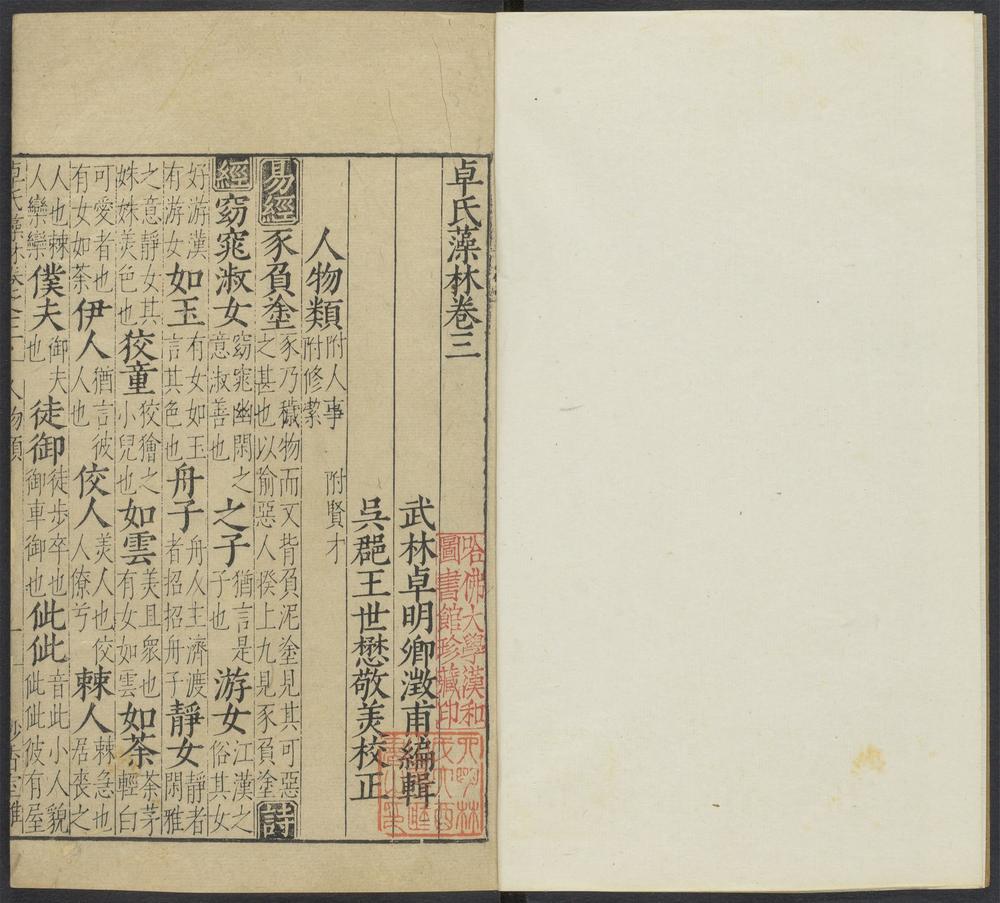 卓氏藻林卷三
武林卓明卿澂甫編輯
吳郡王世懋敬美校正
人物類 附人事 附賢才 附修潔
易經 豕負塗 豕乃穢物而又背負泥塗見其可惡之甚也以喻惡人睽上九見豕負塗 詩
經 窈窕淑女 窈窕幽閑之意淑善也 之子 猶言是子也 游女 江漢之俗其女
好游漢有游女 如玉 有女如玉言其色也 舟子 舟人主濟渡者招招舟子 靜女 靜者閑雅
之意靜女其姝姝美色也 狡童 狡獪之小兒也 如雲 美且衆也有女如雲 如荼 荼茅輕白
可愛者也有女如荼 伊人 猶言彼人也 佼人 美人也佼人僚兮 棘人 棘急也居喪之
人也棘人欒欒 僕夫 御夫也 徒御 徒步卒也御車御也 佌佌 音此小人貌佌佌彼有屋
卓氏藻林卷之三 人物類 一
哈佛大學漢和圖書館珍藏印